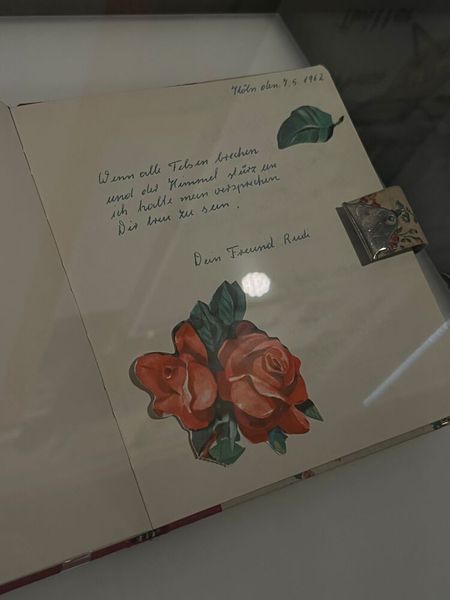 Köln den 7.5.1962
Wenn alle Felsen brechen
und der Himmel stürz ein
ich halte mein versprechen
Dir treu zu sein.
Dein Freund Rudi